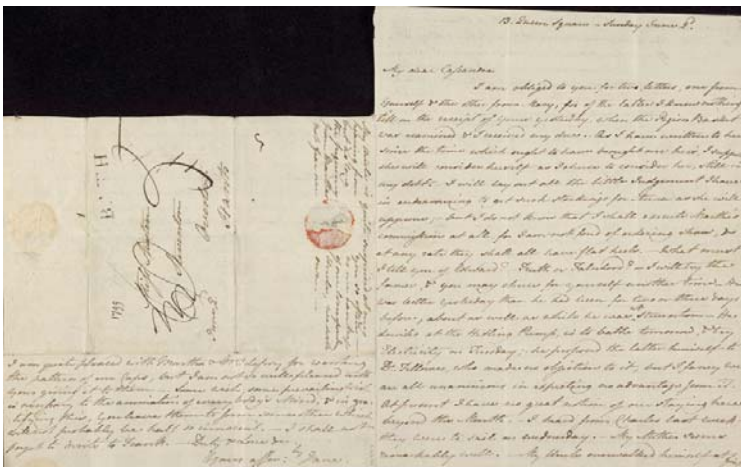 13. Queen Square - Sunday June 2d.
My dear Cassandra
I am obliged to you for two letters, one from
Yourself & the other from Mary, for of the latter I knew nothing
till on the receipt of yours yesterday, when the Pigeon Basket
was examined & I received my due. - As I have written to her
since the time which ought to have brought me her's, I suppose
she will consider herself as I chuse to consider her, still in
my debt. - I will lay out all the little Judgement I have
in endeavouring to get such stockings for Anna as she will
approve; - but I do not know that I shall execute Martha's
commission at all, for I am not fond of ordering shoes, &
at any rate they shall all have flat heels. - What must
I tell you of Edward? - Truth or Falsehood? - I will try the
former, & you may chuse for yourself another time. - He
was better yesterday than he had been for two or three days
before, about as well as while he was at Steventon - He
drinks at the Hetling Pump, is to bathe tomorrow, & try
Electricity on Tuesday; - he proposed the latter himself to
Dr. Fellowes, who made no objection to it, but I fancy we
are all unanimous in expecting no advantage from it.
At present I have no great notion of our staying here
beyond the Month. - I heard from Charles last week;
they were to sail on wednesday. - My Mother seems
remarkably well. - My Uncle overwalked himself at
Miss Austen
Steventon
Overton
Hants
June 2d
1799
I am quite pleased with Martha & Mrs. Lefroy for wanting
the pattern of our Caps, but I am not so well pleased with
Your giving it to them -. Some wish, some prevailing Wish
is necessary to the animation of everybody's Mind, & in gra-
tifying this, you leave them to form some other which
will not probably be half so innocent. - I shall not
forget to write to Frank. - Duty & Love &c.
Yours affec:ly Jane.